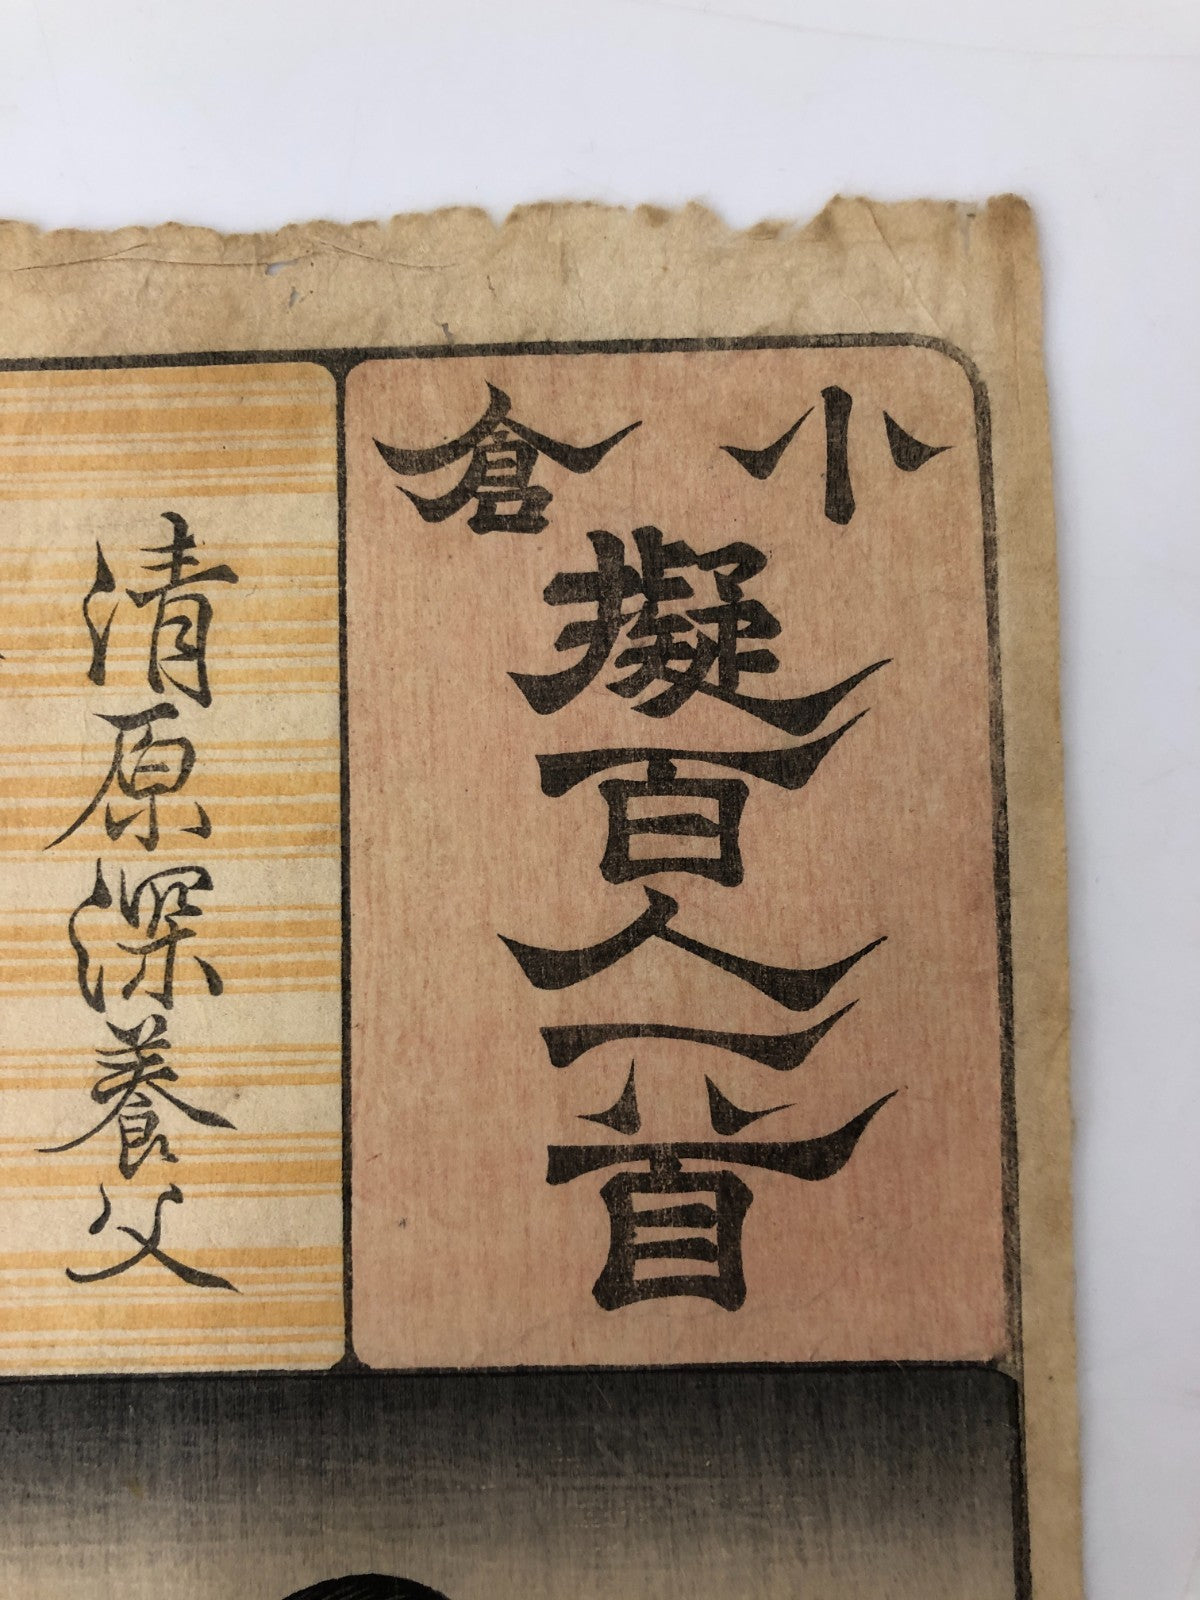 小倉
擬百人一首
清原深養父